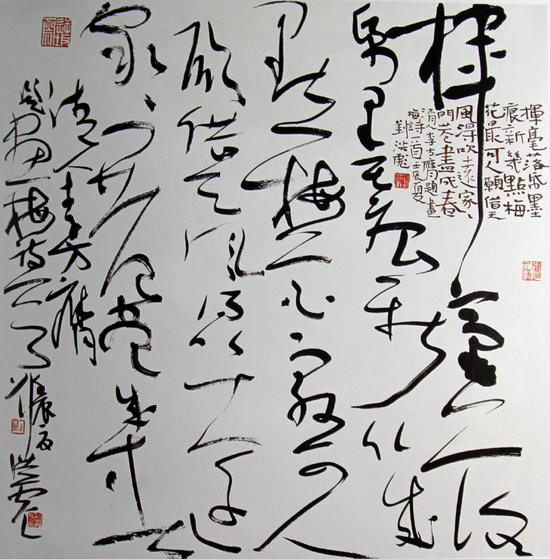 揮毫落
紙墨痕新幾
點梅花最可人
願借天風得吹遠
家家門巷盡成春
清人李方膺
題畫梅詩一首
洪彪
揮毫落紙墨
痕新幾點梅
花最可人願借天
風得吹遠家々
門巷盡成春
清人李方膺題畫
梅詩一首
劉洪彪